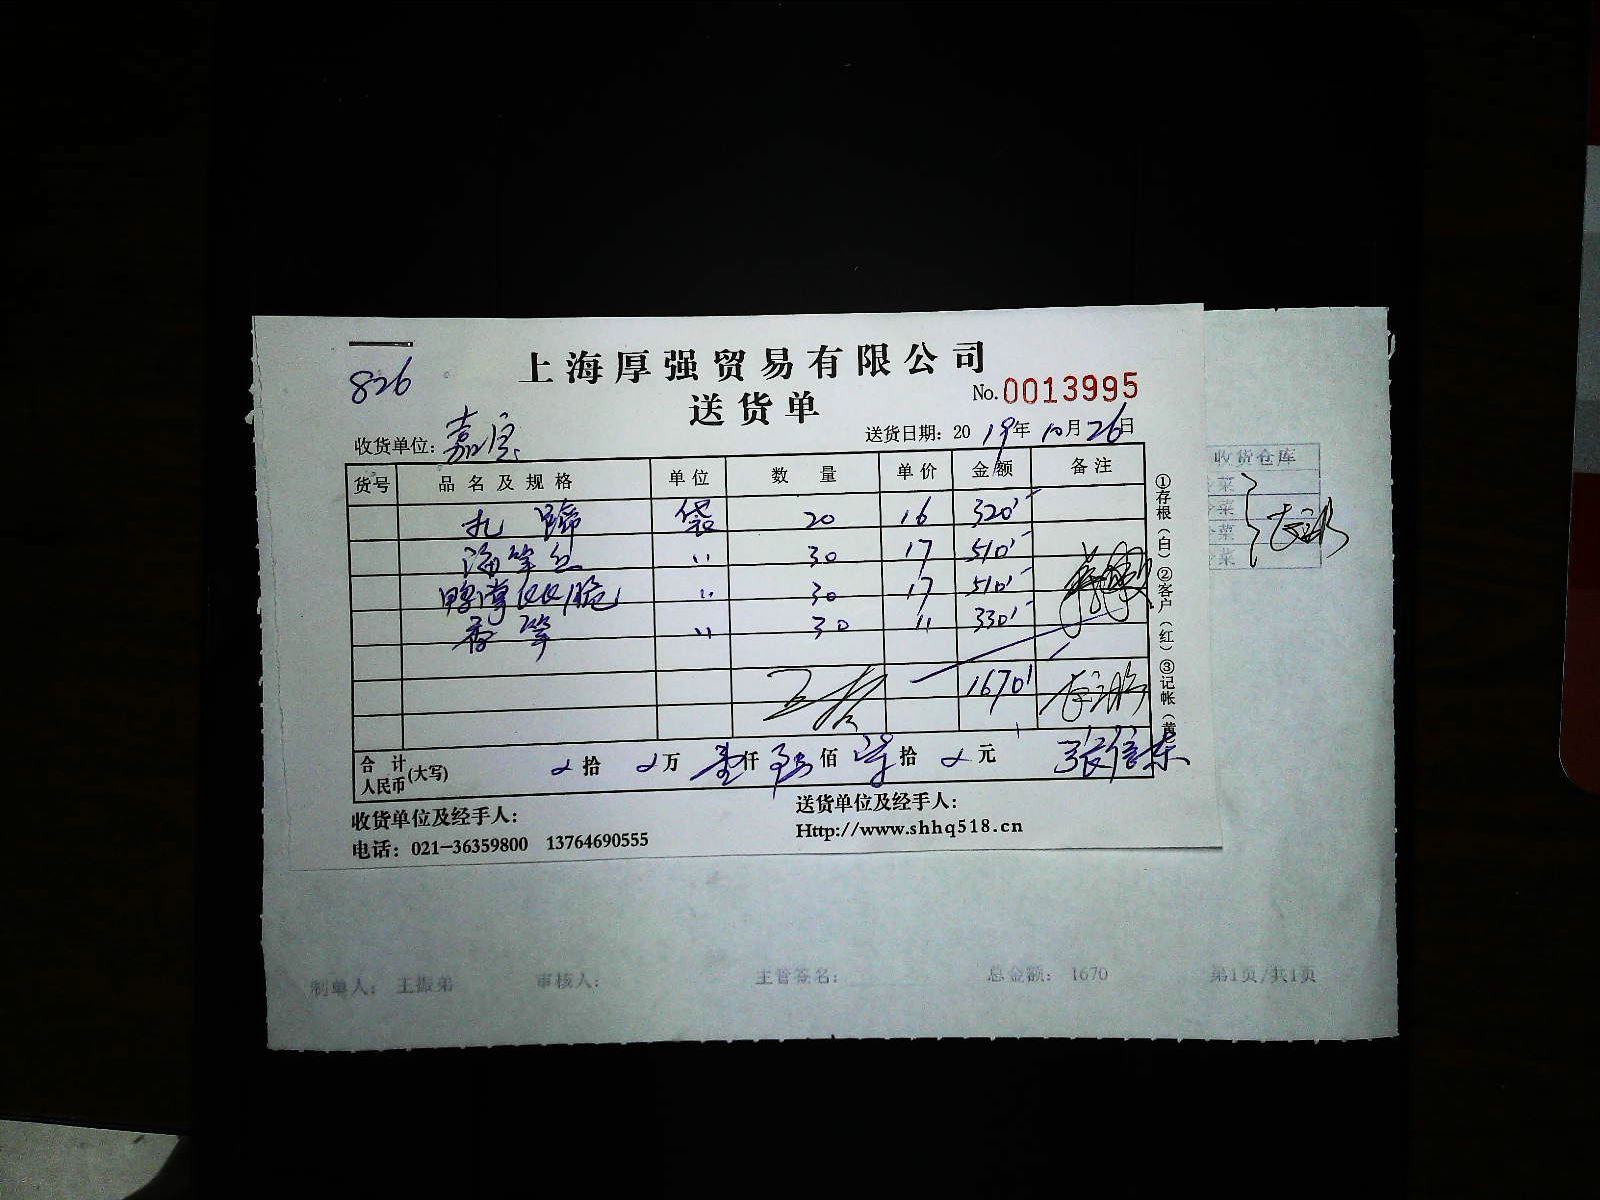 826
上海厚强贸易有限公司
送货单
No.0013995
收货单位：嘉定
送货日期：2019年10月26日
货号 品名及规格 单位 数量 单价 金额 备注
扎蹄 袋 20 16 320
海笋丝 〃 30 17 510
鸭掌 脆 〃 30 17 510
香笋 〃 30 11 330
1670
合计人民币(大写) 拾 万 壹仟陆佰 拾 元
张信东
收货单位及经手人：
送货单位及经手人：
电话：021-36359800 13764690555
Http://www.shhq518.cn
①存根（白）②客户（红）③记帐（黄
收货仓库
菜
菜
菜
菜
制单人：王振弟 审核人： 主管签名： 总金额：1670 第1页/共1页